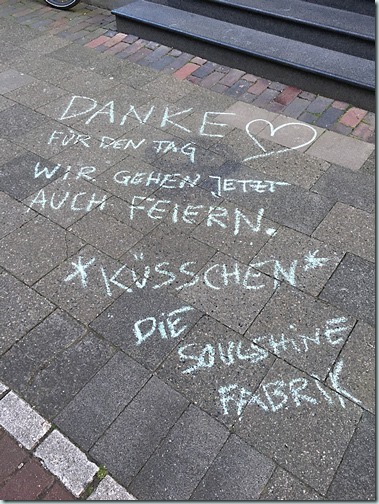 DANKE
FÜR DEN TAG
WIR GEHEN JETZT
AUCH FEIERN.
*KÜSSCHEN*
DIE
SOULSHINE
FABRIK